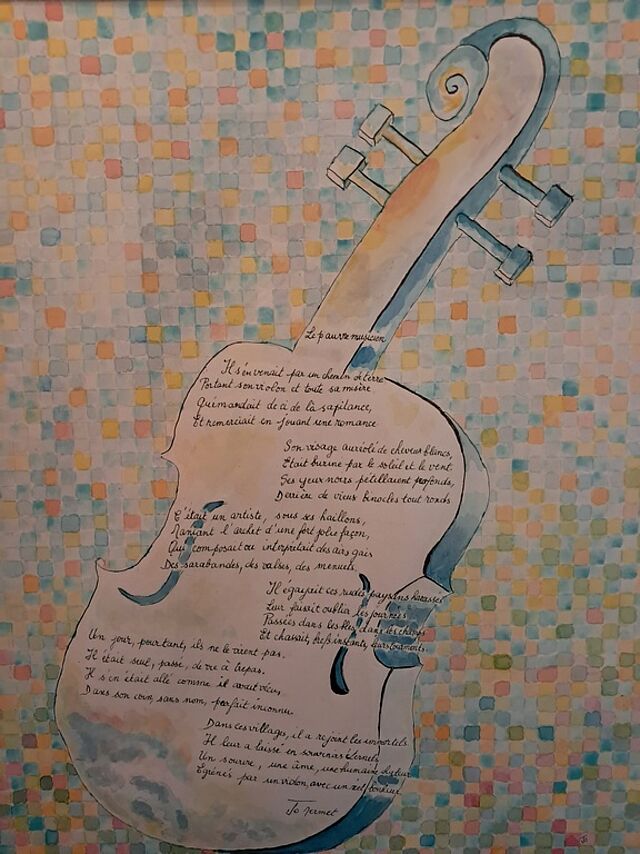 Le pauvre musicien
Il s'en venait par un chemin de terre
Portant son violon et toute sa misère.
Quémandait de ci de là sa pitance,
Et remerciait en jouant une romance.
Son visage auréolé de cheveux blancs,
Était buriné par le soleil et le vent.
Ses yeux noirs pétillaient profonds,
Derrière de vieux binocles tout ronds.
C'était un artiste, sous ses haillons,
Maniant l'archet d'une fort jolie façon,
Qui composait ou interprétait des airs gais
Des sarabandes, des valses, des menuets.
Il égayait ces rudes paysans harassés
Leur faisait oublier les journées
Passées dans les blés et dans les champs
Et chassait, brefs instants, leurs tourments.
Un jour, pourtant, ils ne le virent pas.
Il était seul, passé, de vie à trépas.
Il s'en était allé comme il avait vécu,
Dans son coin, sans nom, parfait inconnu.
Dans ces villages, il a rejoint les immortels
Il leur a laissé en souvenirs éternels
Un sourire, une âme, une humaine
Égrénés par un violon, avec un réel bonheur.
Jo Jermet